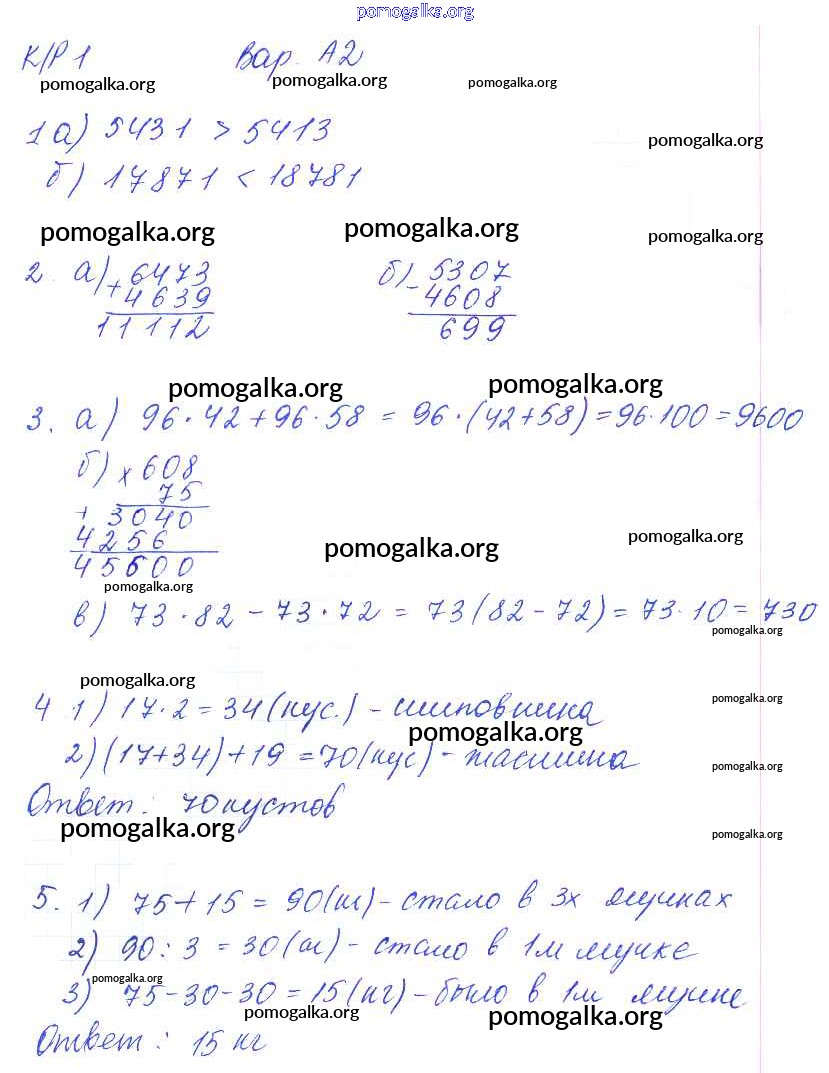 pomogalka.org
К/Р 1 Вар. А2
pomogalka.org pomogalka.org pomogalka.org
1 а) 5431 > 5413
pomogalka.org
б) 17871 < 18781
pomogalka.org pomogalka.org pomogalka.org
2 а) + 6473 б) - 5307
4639 4608
11112 699
pomogalka.org pomogalka.org
3. а) 96 · 42 + 96 · 58 = 96 · (42 + 58) = 96 · 100 = 9600
б) × 608
75
+ 3040
4256
pomogalka.org pomogalka.org
45600
pomogalka.org
в) 73 · 82 - 73 · 72 = 73 (82 - 72) = 73 · 10 = 730
pomogalka.org
pomogalka.org pomogalka.org
4 1) 17 · 2 = 34 (кус.) - шиповника
pomogalka.org
2) (17 + 34) + 19 = 70 (кус) - жасмина
pomogalka.org
Ответ : 70 кустов
pomogalka.org pomogalka.org
5. 1) 75 + 15 = 90 (кг) - стало в 3х ящиках
2) 90 : 3 = 30 (кг) - стало в 1м ящике
pomogalka.org
3) 75 - 30 - 30 = 15 (кг) - было в 1м ящике
pomogalka.org pomogalka.org
Ответ : 15 кг